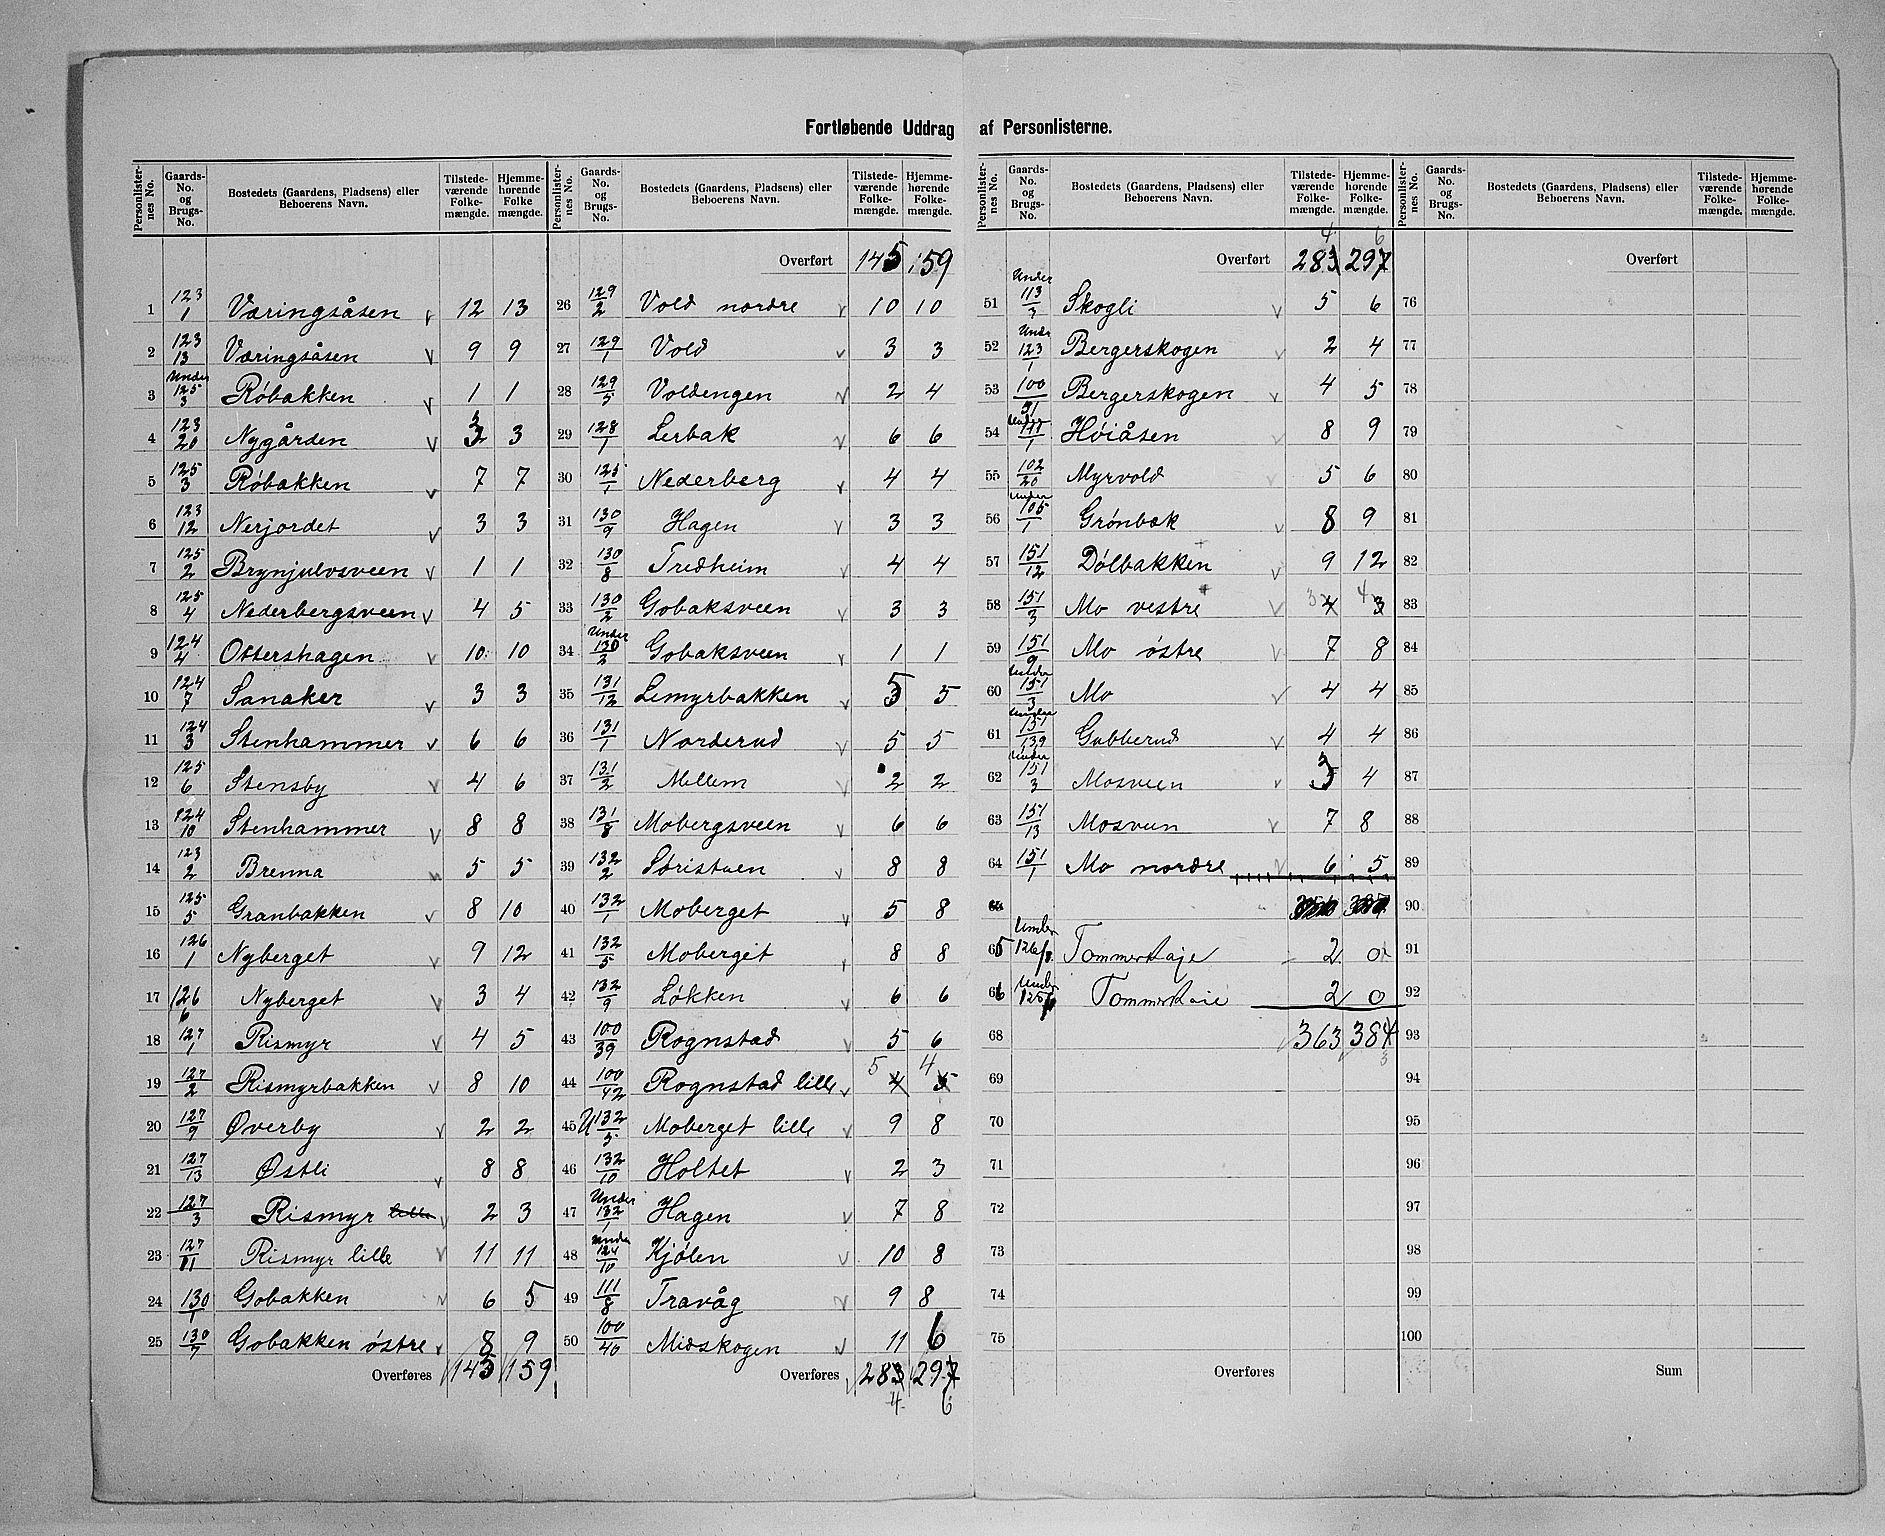 Fortløbende Uddrag af Personlisterne.
Personlisternes No. | Gaards-No. og Brugs-No. | Bostedets (Gaardens, Pladsens) eller Beboerens Navn. | Tilstedeværende Folkemængde. | Hjemmehørende Folkemængde.
1 123/1 Væringsåsen 12 13
2 123/13 Væringsåsen 9 9
3 Under 125/3 Røbakken 1 1
4 123/20 Nygården 3 3
5 125/3 Røbakken 7 7
6 123/12 Nerjordet 3 3
7 125/2 Brynjulvsveen 1 1
8 125/4 Nederbergsveen 4 5
9 124/4 Ottershagen 10 10
10 124/7 Sanaker 3 3
11 124/3 Stenhammer 6 6
12 125/6 Stensby 4 6
13 124/10 Stenhammer 8 8
14 123/2 Brenna 5 5
15 125/5 Granbakken 8 10
16 126/1 Nyberget 9 12
17 126/6 Nyberget 3 4
18 127/1 Rismyr 4 5
19 127/2 Rismyrbakken 8 10
20 127/9 Øverby 2 2
21 127/13 Østli 8 8
22 127/3 Rismyr lille 2 3
23 127/11 Rismyr lille 11 11
24 130/1 Gobakken 6 5
25 130/7 Gobakken østre 8 9
Overføres 145 159
Overført 145 159
26 129/2 Vold nordre 10 10
27 129/1 Vold 3 3
28 129/5 Voldengen 2 4
29 128/1 Lerbak 6 6
30 125/1 Nederberg 4 4
31 130/9 Hagen 3 3
32 130/8 Fredheim 4 4
33 130/2 Gobaksveen 3 3
34 Under 130/2 Gobaksveen 1 1
35 131/12 Lemyrbakken 5 5
36 131/1 Norderud 5 5
37 131/2 Mellem 2 2
38 131/8 Mobergsveen 6 6
39 132/2 Søristuen 8 8
40 132/1 Moberget 5 8
41 132/5 Moberget 8 8
42 132/9 Løkken 6 6
43 100/39 Rognstad 5 6
44 100/42 Rognstad lille 5 4 4 5
45 U 132/5 Moberget lille 9 8
46 132/10 Holtet 2 3
47 Under 132/1 Hagen 7 8
48 Under 124/10 Kjølen 10 8
49 111/8 Travåg 9 8
50 100/40 Midskogen 11 6
Overføres 283 297
4 6
4 6
Overført 283 297
51 Under 113/3 Skogli 5 6
52 Under 123/1 Bergerskogen 2 4
53 100/51 Bergerskogen 4 5
54 Under 111/1 Høiåsen 8 9
55 102/20 Myrvold 5 6
56 Under 105/1 Grønbæk 8 9
57 151/12 Dølbakken 9 12
58 151/3 Mo vestre 3 4 4 3
59 151/9 Mo østre 7 8
60 Under 151/3 Mo 4 4
61 Under 151/139 Gubberud 4 4
62 Under 151/3 Mosveen 3 4
63 151/13 Mosveen 7 8
64 151/1 Mo nordre 6 5
65 Under 126/8 Tømmerkoje 2 0
66 Under 125/6 Tømmerkoie 2 0
68 363 384
3
69
70
71
72
73
74
75
Overføres
Overført
76
77
78
79
80
81
82
83
84
85
86
87
88
89
90
91
92
93
94
95
96
97
98
99
100
Sum